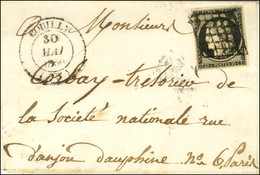 30
MAI
Monsieur
Corbay-trésorier de
la Société nationale rue
d'anjou dauphine nº 6 Paris